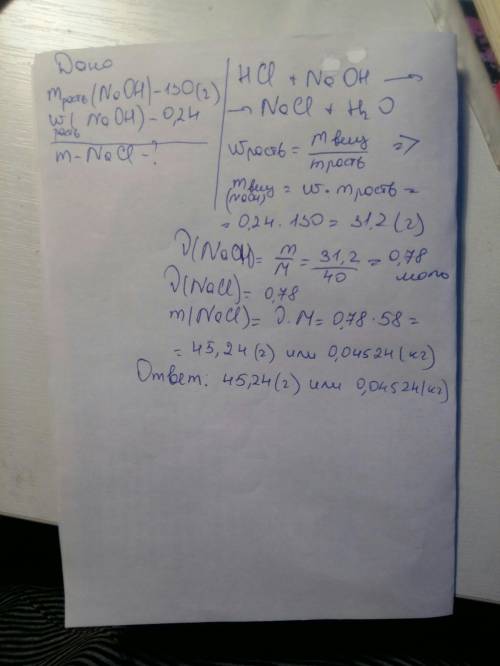 Дано
mраств (NaOH) - 130 (г)
w раств (NaOH) - 0,24
m - NaCl - ?
HCl + NaOH →
→ NaCl + H₂O
wраств = m вещ / mраств =>
m вещ (NaOH) = w · mраств =
= 0,24 · 130 = 31,2 (г)
ν(NaOH) = m/M = 31,2/40 = 0,78 моль
ν(NaCl) = 0,78
m(NaCl) = ν · M = 0,78 · 58 =
= 45,24 (г) или 0,04524 (кг)
Ответ: 45,24 (г) или 0,04524 (кг)